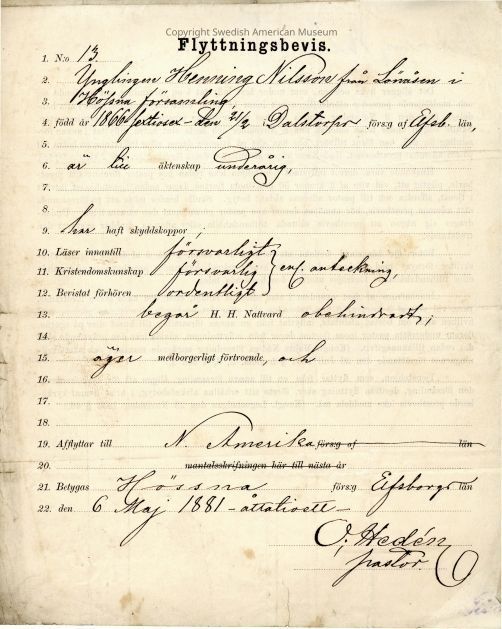 Copyright Swedish American Museum
Flyttningsbevis.
1. N:o 13
2. Ynglingen Henning Nilsson från Lönåsen i
3. Hössna församling,
4. född år 1866 sextiosex – den 21/2 i Dalstorps förs:g af Elfsb. län,
5.
6. är till äktenskap underårig,
7.
8.
9. har haft skyddskoppor ;
10. Läser innantill försvarligt
11. Kristendomskunskap försvarlig } enl. anteckning,
12. Bevistat förhören ordentligt
13. begår H. H. Nattvard obehindradt ;
14.
15. äger medborgerligt förtroende, och
16.
17.
18.
19. Afflyttar till N. Amerika förs:g af län
20. mantalsskrifningen här till nästa år
21. Betygas Hössna förs:g Elfsborgs län
22. den 6 Maj 1881 – åttatioett –
O; Hedén
pastor.